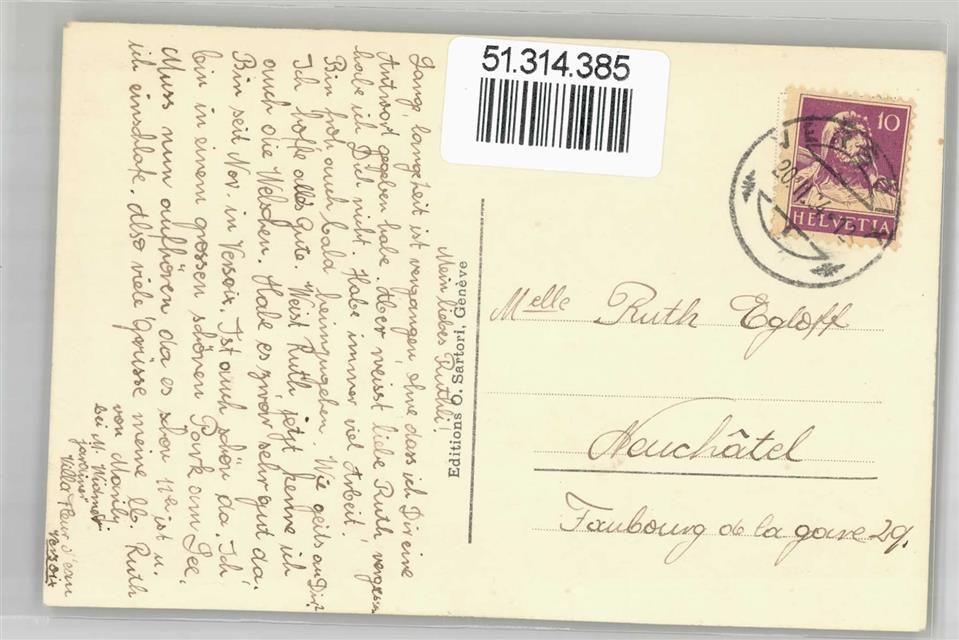 51.314.385
10
HELVETIA
Melle Ruth Egloff
Neuchâtel
Faubourg de la gare 29.
Editions O. Sartori, Genève
Mein liebes Ruthli!
Lang, langzeit ist vergangen, ohne dass ich Dir eine
Antwort gegeben habe. Aber weisst liebe Ruth, vergessen
habe ich Dich nicht. Habe immer viel Arbeit!
Bin froh auch bald heimzugehen. Wie geits au Dir?
Ich hoffe alles Gute. Weist Ruth jetzt kenne ich
auch die Welschen. Habe es zwar sehr gut da.
Bin seit Nov. in Versoix. Ist auch schön da. Ich
bin in einem grossen schönen Park am See.
Muss nun aufhören da es schon 11h ist u.
ich einschlafe. Also viele Grüsse meine lb. Ruth
von Marily
bei M. Widmer
jardinier
Villa Fleur d'eau
Versoix